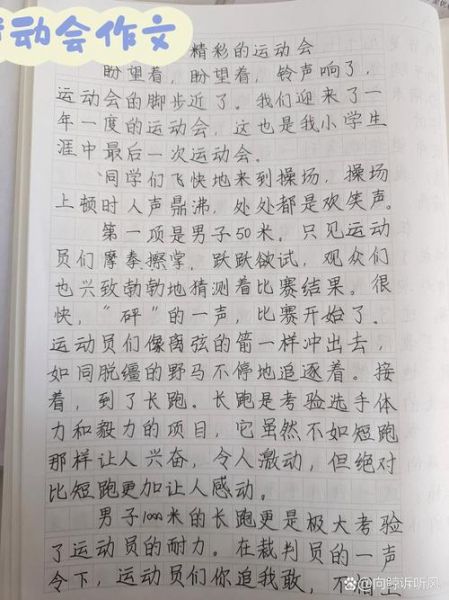 动会作文
精彩的运动会
盼望着，盼望着，铃声响了，
运动会的脚步近了。我们迎来了一
年一度的运动会，这也是我小学生
涯中最后一次运动会。
同学们飞快地来到操场，操场
上顿时人声鼎沸，处处都是欢笑声。
第一项是男子50米。只见运动
员们摩拳擦掌，跃跃欲试，观众们
也兴致勃勃地猜测着比赛结果。很
快，“砰”的一声，比赛开始了。
运动员们像离弦的箭一样冲出去，
如同脱缰的野马不停地追逐着。接
着，到了长跑。长跑是考验选手体
力和毅力的项目，它虽然不如短跑
那样让人兴奋，令人激动，但绝对
比短跑更加让人感动。
男子1000米的长跑更是极大考验
了运动员的耐力。在裁判员的一声
令下，运动员们你追我敢，不
@向鲸诉听风